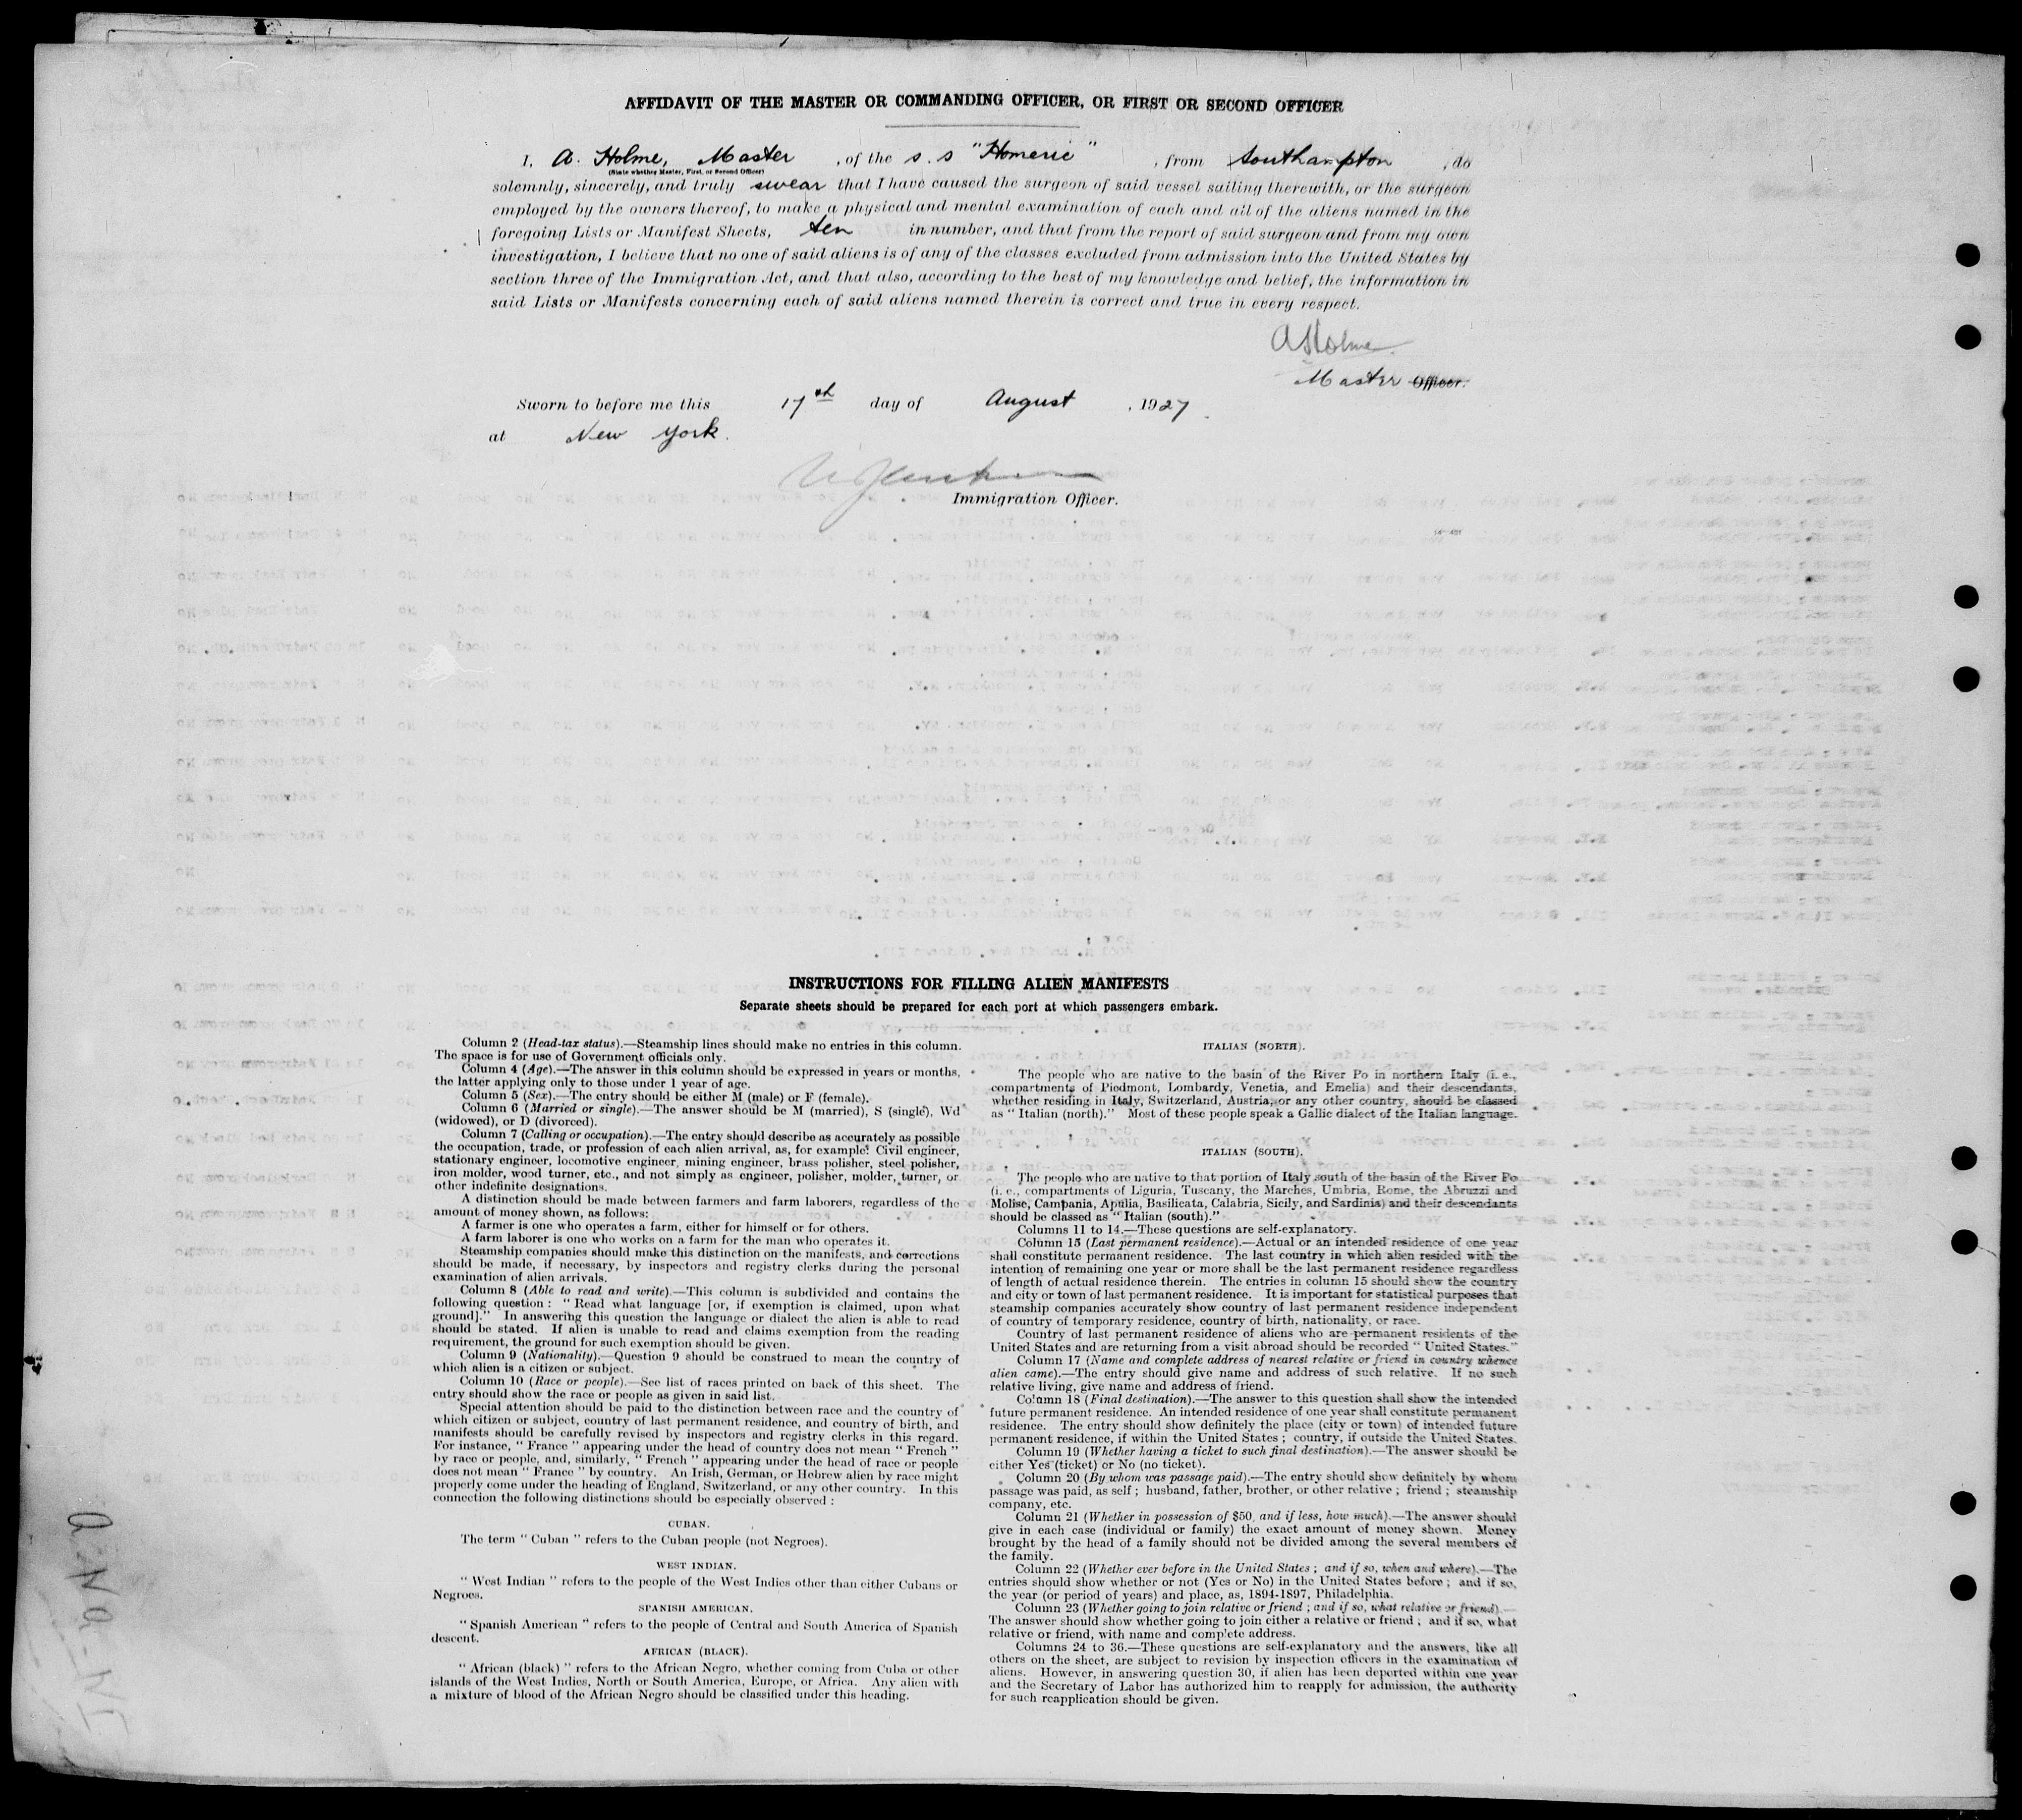 AFFIDAVIT OF THE MASTER OR COMMANDING OFFICER, OR FIRST OR SECOND OFFICER
I, A. Holme, Master , of the s.s "Homeric" , from Southampton , do
(State whether Master, First, or Second Officer)
solemnly, sincerely, and truly swear that I have caused the surgeon of said vessel sailing therewith, or the surgeon
employed by the owners thereof, to make a physical and mental examination of each and all of the aliens named in the
foregoing Lists or Manifest Sheets, ten in number, and that from the report of said surgeon and from my own
investigation, I believe that no one of said aliens is of any of the classes excluded from admission into the United States by
section three of the Immigration Act, and that also, according to the best of my knowledge and belief, the information in
said Lists or Manifests concerning each of said aliens named therein is correct and true in every respect.
A Holme
Master Officer.
Sworn to before me this 17th day of August , 1927
at New York.
Immigration Officer.
14—491
INSTRUCTIONS FOR FILLING ALIEN MANIFESTS
Separate sheets should be prepared for each port at which passengers embark.
Column 2 (Head-tax status).—Steamship lines should make no entries in this column.
The space is for use of Government officials only.
Column 4 (Age).—The answer in this column should be expressed in years or months,
the latter applying only to those under 1 year of age.
Column 5 (Sex).—The entry should be either M (male) or F (female).
Column 6 (Married or single).—The answer should be M (married), S (single), Wd
(widowed), or D (divorced).
Column 7 (Calling or occupation).—The entry should describe as accurately as possible
the occupation, trade, or profession of each alien arrival, as, for example: Civil engineer,
stationary engineer, locomotive engineer, mining engineer, brass polisher, steel polisher,
iron molder, wood turner, etc., and not simply as engineer, polisher, molder, turner, or
other indefinite designations.
A distinction should be made between farmers and farm laborers, regardless of the
amount of money shown, as follows:
A farmer is one who operates a farm, either for himself or for others.
A farm laborer is one who works on a farm for the man who operates it.
Steamship companies should make this distinction on the manifests, and corrections
should be made, if necessary, by inspectors and registry clerks during the personal
examination of alien arrivals.
Column 8 (Able to read and write).—This column is subdivided and contains the
following question: "Read what language [or, if exemption is claimed, upon what
ground]." In answering this question the language or dialect the alien is able to read
should be stated. If alien is unable to read and claims exemption from the reading
requirement, the ground for such exemption should be given.
Column 9 (Nationality).—Question 9 should be construed to mean the country of
which alien is a citizen or subject.
Column 10 (Race or people).—See list of races printed on back of this sheet. The
entry should show the race or people as given in said list.
Special attention should be paid to the distinction between race and the country of
which citizen or subject, country of last permanent residence, and country of birth, and
manifests should be carefully revised by inspectors and registry clerks in this regard.
For instance, "France" appearing under the head of country does not mean "French"
by race or people, and, similarly, "French" appearing under the head of race or people
does not mean "France" by country. An Irish, German, or Hebrew alien by race might
properly come under the heading of England, Switzerland, or any other country. In this
connection the following distinctions should be especially observed:
CUBAN.
The term "Cuban" refers to the Cuban people (not Negroes).
WEST INDIAN.
"West Indian" refers to the people of the West Indies other than either Cubans or
Negroes.
SPANISH AMERICAN.
"Spanish American" refers to the people of Central and South America of Spanish
descent.
AFRICAN (BLACK).
"African (black)" refers to the African Negro, whether coming from Cuba or other
islands of the West Indies, North or South America, Europe, or Africa. Any alien with
a mixture of blood of the African Negro should be classified under this heading.
ITALIAN (NORTH).
The people who are native to the basin of the River Po in northern Italy (i. e.,
compartments of Piedmont, Lombardy, Venetia, and Emelia) and their descendants,
whether residing in Italy, Switzerland, Austria, or any other country, should be classed
as "Italian (north)." Most of these people speak a Gallic dialect of the Italian language.
ITALIAN (SOUTH).
The people who are native to that portion of Italy south of the basin of the River Po
(i. e., compartments of Liguria, Tuscany, the Marches, Umbria, Rome, the Abruzzi and
Molise, Campania, Apulia, Basilicata, Calabria, Sicily, and Sardinia) and their descendants
should be classed as "Italian (south)."
Columns 11 to 14.—These questions are self-explanatory.
Column 15 (Last permanent residence).—Actual or an intended residence of one year
shall constitute permanent residence. The last country in which alien resided with the
intention of remaining one year or more shall be the last permanent residence regardless
of length of actual residence therein. The entries in column 15 should show the country
and city or town of last permanent residence. It is important for statistical purposes that
steamship companies accurately show country of last permanent residence independent
of country of temporary residence, country of birth, nationality, or race.
Country of last permanent residence of aliens who are permanent residents of the
United States and are returning from a visit abroad should be recorded "United States."
Column 17 (Name and complete address of nearest relative or friend in country whence
alien came).—The entry should give name and address of such relative. If no such
relative living, give name and address of friend.
Column 18 (Final destination).—The answer to this question shall show the intended
future permanent residence. An intended residence of one year shall constitute permanent
residence. The entry should show definitely the place (city or town) of intended future
permanent residence, if within the United States; country, if outside the United States.
Column 19 (Whether having a ticket to such final destination).—The answer should be
either Yes (ticket) or No (no ticket).
Column 20 (By whom was passage paid).—The entry should show definitely by whom
passage was paid, as self; husband, father, brother, or other relative; friend; steamship
company, etc.
Column 21 (Whether in possession of $50, and if less, how much).—The answer should
give in each case (individual or family) the exact amount of money shown. Money
brought by the head of a family should not be divided among the several members of
the family.
Column 22 (Whether ever before in the United States; and if so, when and where).—The
entries should show whether or not (Yes or No) in the United States before; and if so,
the year (or period of years) and place, as, 1894-1897, Philadelphia.
Column 23 (Whether going to join relative or friend; and if so, what relative or friend).—
The answer should show whether going to join either a relative or friend; and if so, what
relative or friend, with name and complete address.
Columns 24 to 36.—These questions are self-explanatory and the answers, like all
others on the sheet, are subject to revision by inspection officers in the examination of
aliens. However, in answering question 30, if alien has been deported within one year
and the Secretary of Labor has authorized him to reapply for admission, the authority
for such reapplication should be given.